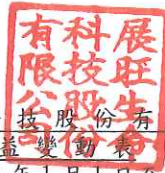 展旺生命
科技股份
有限公司
技股份有
益變動表
年1月1日